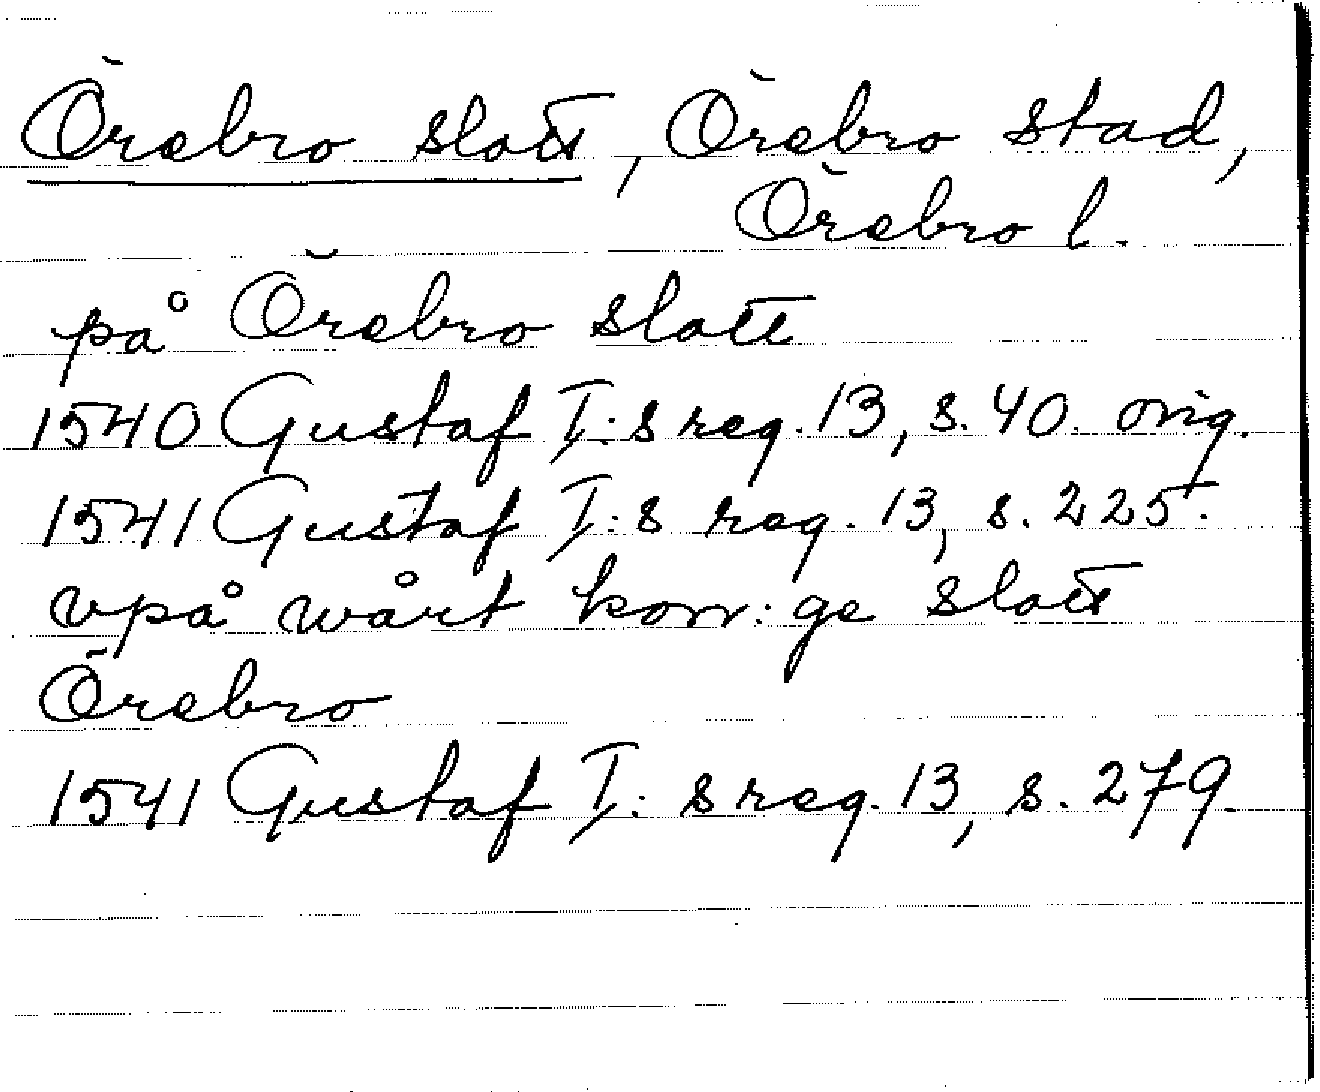 Örebro slott, Örebro stad,
Örebro l.
på Örebro slott
1540 Gustaf I:s reg. 13, s. 40. orig.
1541 Gustaf I:s reg. 13, s. 225.
vpå wårt konr:ge slott
Örebro
1541 Gustaf I:s reg. 13, s. 279.